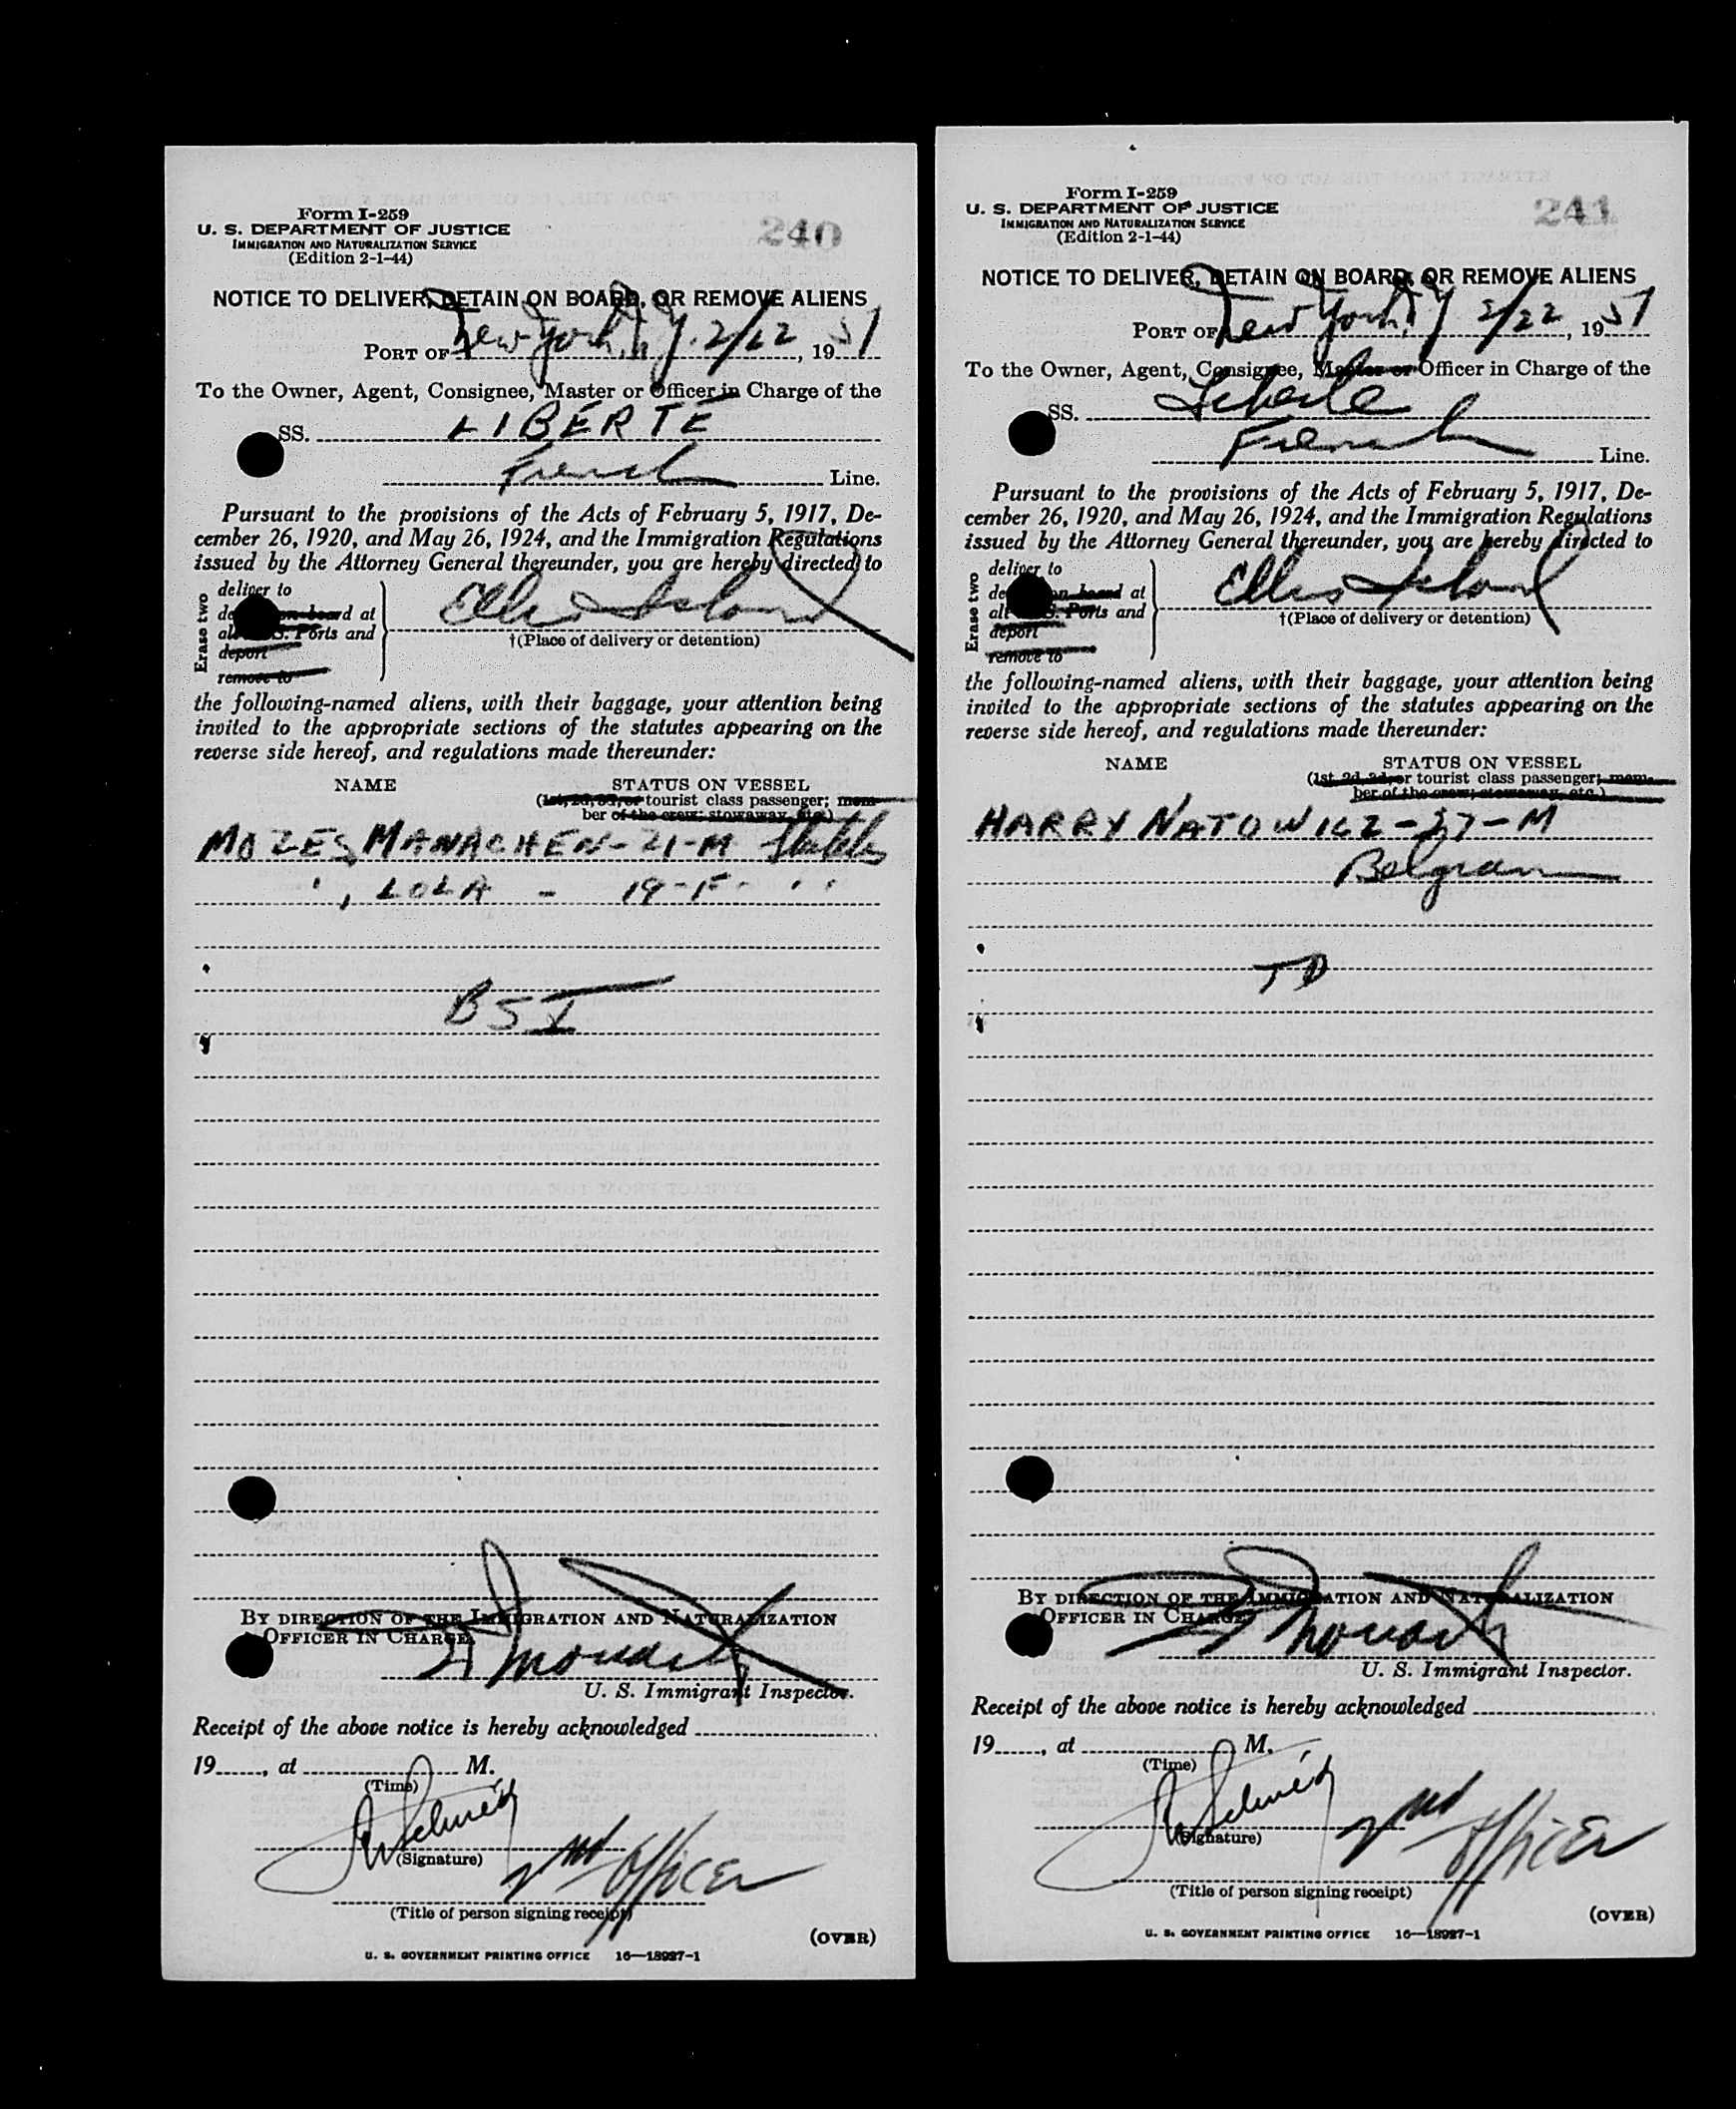 Form I-259
U. S. DEPARTMENT OF JUSTICE
IMMIGRATION AND NATURALIZATION SERVICE
(Edition 2-1-44)
240
NOTICE TO DELIVER, DETAIN ON BOARD, OR REMOVE ALIENS
PORT OF New York, N.Y. 2/22, 1951
To the Owner, Agent, Consignee, Master or Officer in Charge of the
SS. LIBERTÉ
French Line.
Pursuant to the provisions of the Acts of February 5, 1917, De-
cember 26, 1920, and May 26, 1924, and the Immigration Regulations
issued by the Attorney General thereunder, you are hereby directed to
Erase two
deliver to
on board at
Ports and
deport
remove to
Ellis Island
†(Place of delivery or detention)
the following-named aliens, with their baggage, your attention being
invited to the appropriate sections of the statutes appearing on the
reverse side hereof, and regulations made thereunder:
NAME STATUS ON VESSEL
(1st, 2d, 3d, or tourist class passenger; mem-
ber of the crew; stowaway, etc.)
MOZES, MANACHEN - 21 - M Stateless
", LOLA - 19 - F - " "
BSI
BY DIRECTION OF THE IMMIGRATION AND NATURALIZATION
OFFICER IN CHARGE.
U. S. Immigrant Inspector.
Receipt of the above notice is hereby acknowledged
19......, at M.
(Time)
(Signature)
2nd Officer
(Title of person signing receipt)
(OVER)
U. S. GOVERNMENT PRINTING OFFICE 16—18927-1
Form I-259
U. S. DEPARTMENT OF JUSTICE
IMMIGRATION AND NATURALIZATION SERVICE
(Edition 2-1-44)
241
NOTICE TO DELIVER, DETAIN ON BOARD, OR REMOVE ALIENS
PORT OF New York, N.Y. 2/22, 1951
To the Owner, Agent, Consignee, Master or Officer in Charge of the
SS. Liberte
French Line.
Pursuant to the provisions of the Acts of February 5, 1917, De-
cember 26, 1920, and May 26, 1924, and the Immigration Regulations
issued by the Attorney General thereunder, you are hereby directed to
Erase two
deliver to
on board at
all Ports and
deport
remove to
Ellis Island
†(Place of delivery or detention)
the following-named aliens, with their baggage, your attention being
invited to the appropriate sections of the statutes appearing on the
reverse side hereof, and regulations made thereunder:
NAME STATUS ON VESSEL
(1st, 2d, 3d, or tourist class passenger; mem-
ber of the crew; stowaway, etc.)
HARRY NATOWICZ - 27 - M
Belgian
TD
BY DIRECTION OF THE IMMIGRATION AND NATURALIZATION
OFFICER IN CHARGE.
U. S. Immigrant Inspector.
Receipt of the above notice is hereby acknowledged
19......, at M.
(Time)
(Signature)
2nd Officer
(Title of person signing receipt)
(OVER)
U. S. GOVERNMENT PRINTING OFFICE 16—18927-1